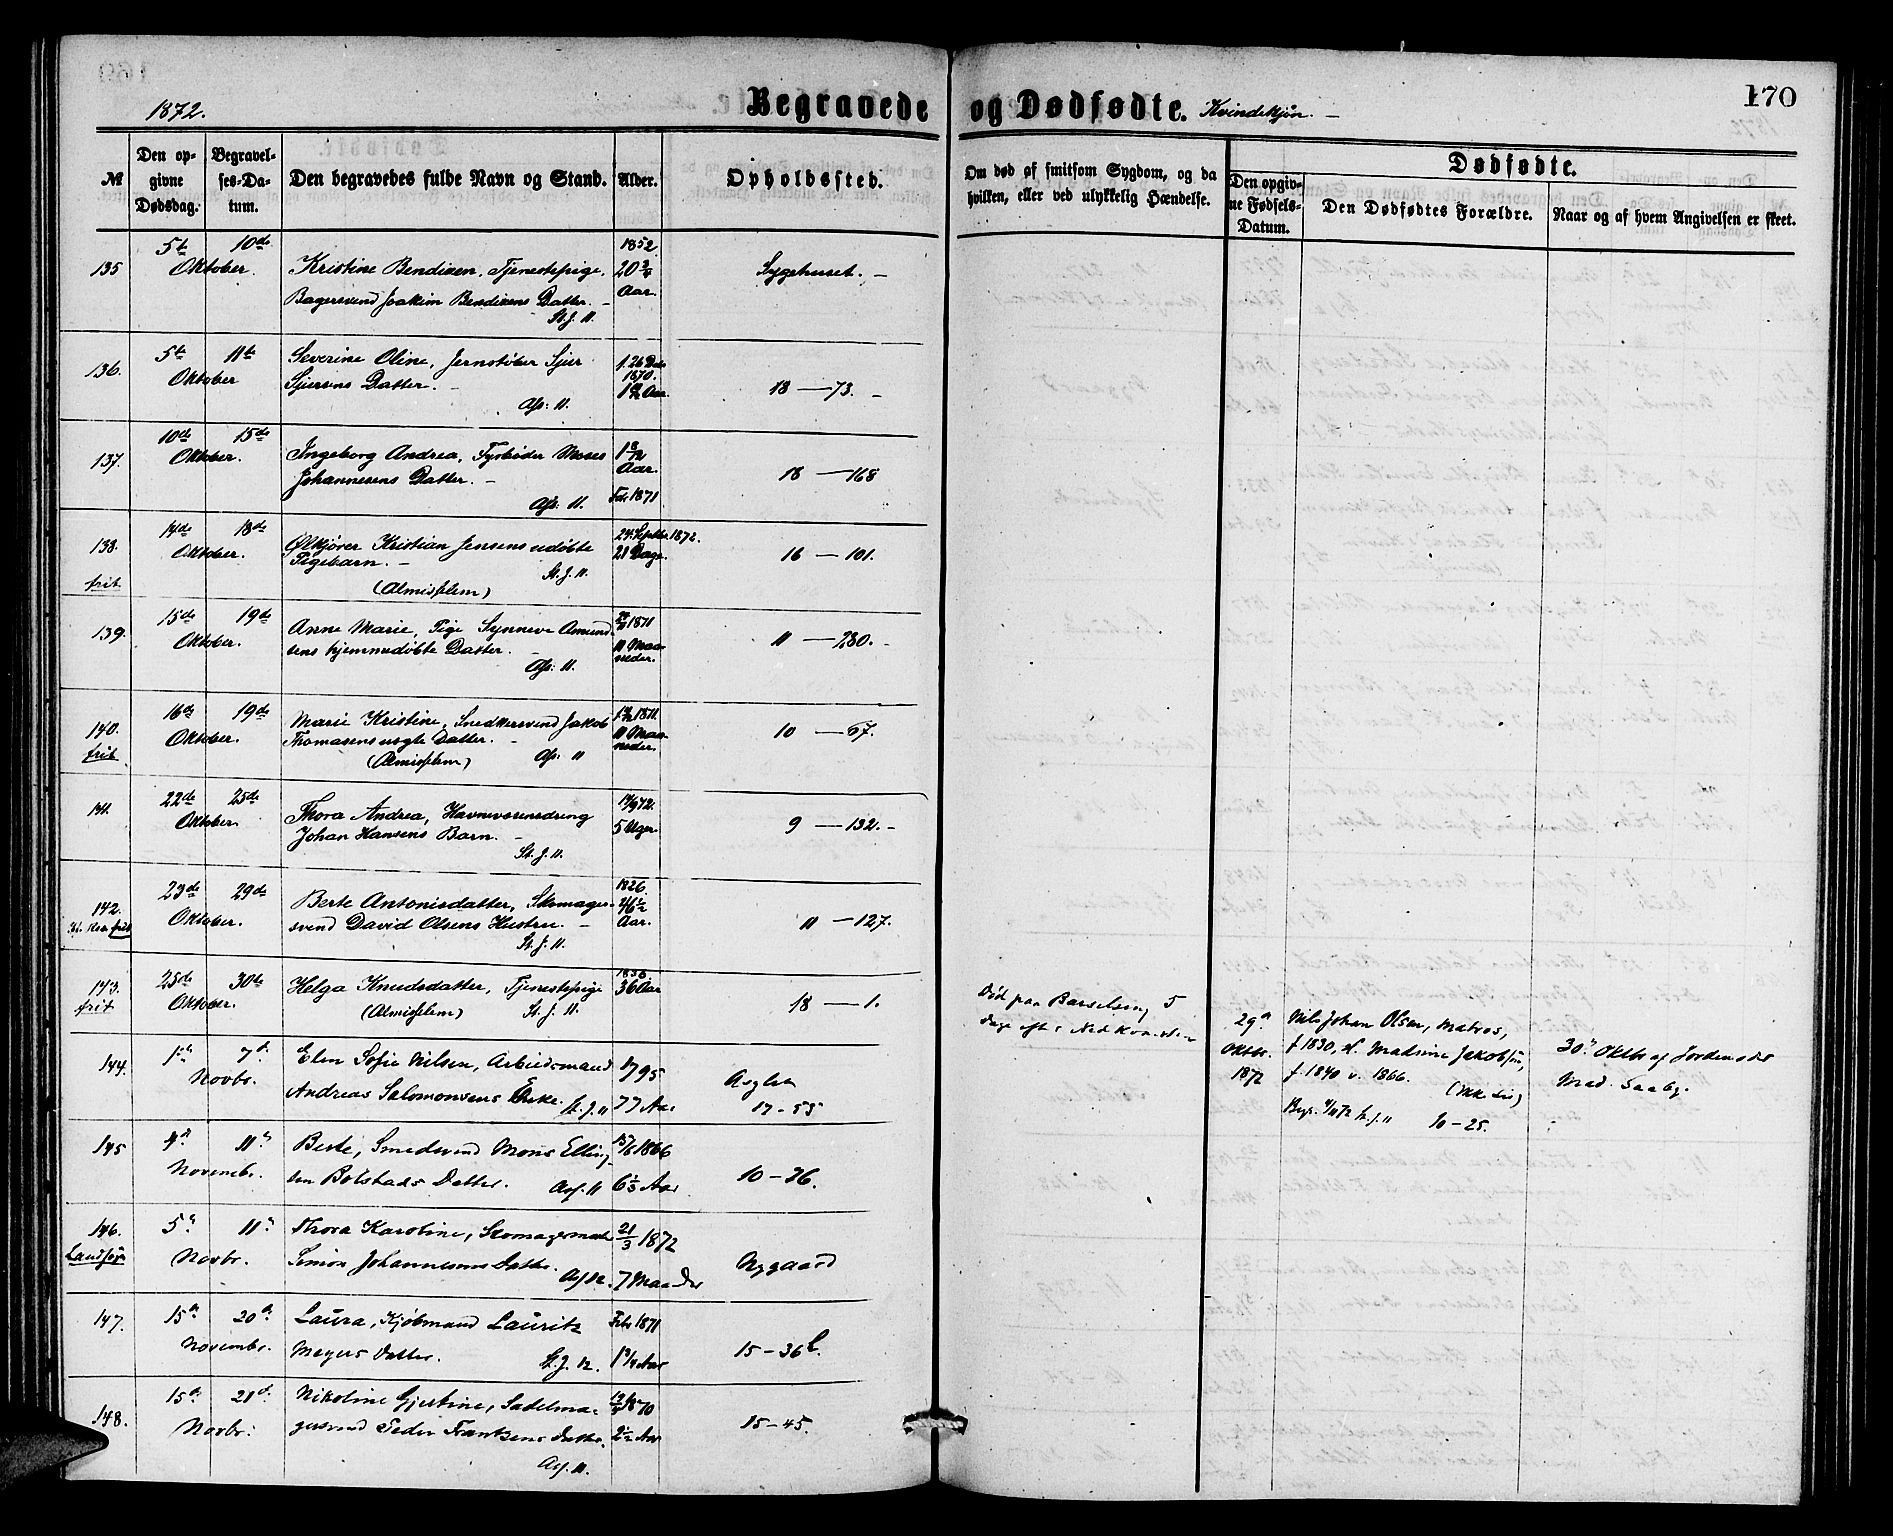 1872.
Begravede og Dødfødte. Kvindekjøn. —
170
№
Den op-
givne
Dødsdag.
Begravel-
ses-Da-
tum.
Den begravedes fulde Navn og Stand.
Alder.
Opholdssted.
Om død af smitsom Sygdom, og da
hvilken, eller ved ulykkelig Hændelse.
Dødfødte.
Den opgiv-
ne Fødsels-
Datum.
Den Dødfødtes Forældre.
Naar og af hvem Angivelsen er skeet.
135 5te 10de Oktober.
Kristine Bendixen, Tjenestepige,
Bagersvend Joakim Bendixens Datter. —
St. J. U.
1852.
20 3/4
Aar.
Sygehuset. —
136. 5te 11te Oktober
Severine Oline, Jernstøber Sjur
Sjursens Datter. —
Ass: U.
1870.
18 — 73. —
137. 10de 15de Oktober.
Ingeborg Andrea, Fyrbøder Moses
Johannesens Datter. —
Ass: U.
1 8/12
Aar.
Febr 1871
18 — 168
138. 14de 18de Oktober.
frit
Ølkjører Kristian Jensens udøbte
Pigebarn. —
St. J. U.
(Almisselem)
24. Septbr. 1872.
21 Dage.
16 — 101.
139. 15de 19de Oktober.
Anne Marie, Pige Synneve Amund-
sens hjemmedøbte Datter. —
Ass: U.
1871
11 Maa-
neder.
11 — 280. —
140. 16de 19de Oktober.
frit
Marie Kristine, Snedkersvend Jakob
Thomasens uægte Datter. —
(Almisselem) Ass: U
1871.
11 Maa-
neder.
10 — 67.
141. 22de 25de Oktober.
Thora Andrea, Havnevæsensdreng
Johan Hansens Barn. —
St. J. U.
14/9 72.
5 Uger.
9 — 132. —
142. 23de 29de Oktober.
frit
Berte Antonisdatter, Skomager-
svend David Olsens Hustru. —
St. J. U.
1826.
46 1/2
Aar.
11 — 127.
143. 25de 30te Oktober.
frit
Helga Knudsdatter, Tjenestepige
(Almisselem) St. J. U.
1836
36 Aar
18 — 1.
Død paa Barselseng 5
Dage efter Nedkomsten
29de
Oktbr.
1872
Nils Johan Olsen, Matros,
f. 1830, og Madsine Jakobsen,
f. 1840 v. 1866.
Begr. 4/11 72 St. J. U
10 — 25.
30te Oktbr af Jordemoder
Mad. Saaby.
144. 1ste 7de Novbr.
Elen Sofie Nilsen, Arbeidsmand
Andreas Salomonsens Enke. St. J. U
1795
77 Aar
Asylet
17 - 55
145 4de 11te Novembr.
Berte, Smedsvend Mons Elling-
sen Bolstads Datter. Ass. U
1866
6 1/3 Aar
10 - 36.
146. 5te 11te Novbr.
Landsogn
Thora Karoline, Skomagermester
Simon Johannesens Datter.
Ass. U.
21/3 1872
7 Maaneder
Nygaard
147. 15de 20de Novembr.
Laura, Kjøbmand Lauritz
Meyers Datter. St. J. U.
Febr 1871
1 3/4 Aar
15 - 36 b.
148. 15de 21de Novbr.
Nikoline Gjertine, Sadelma-
gersvend Peder Frantzens Datter.
Ass. U.
1870
2 1/2 Aar
15 - 45.